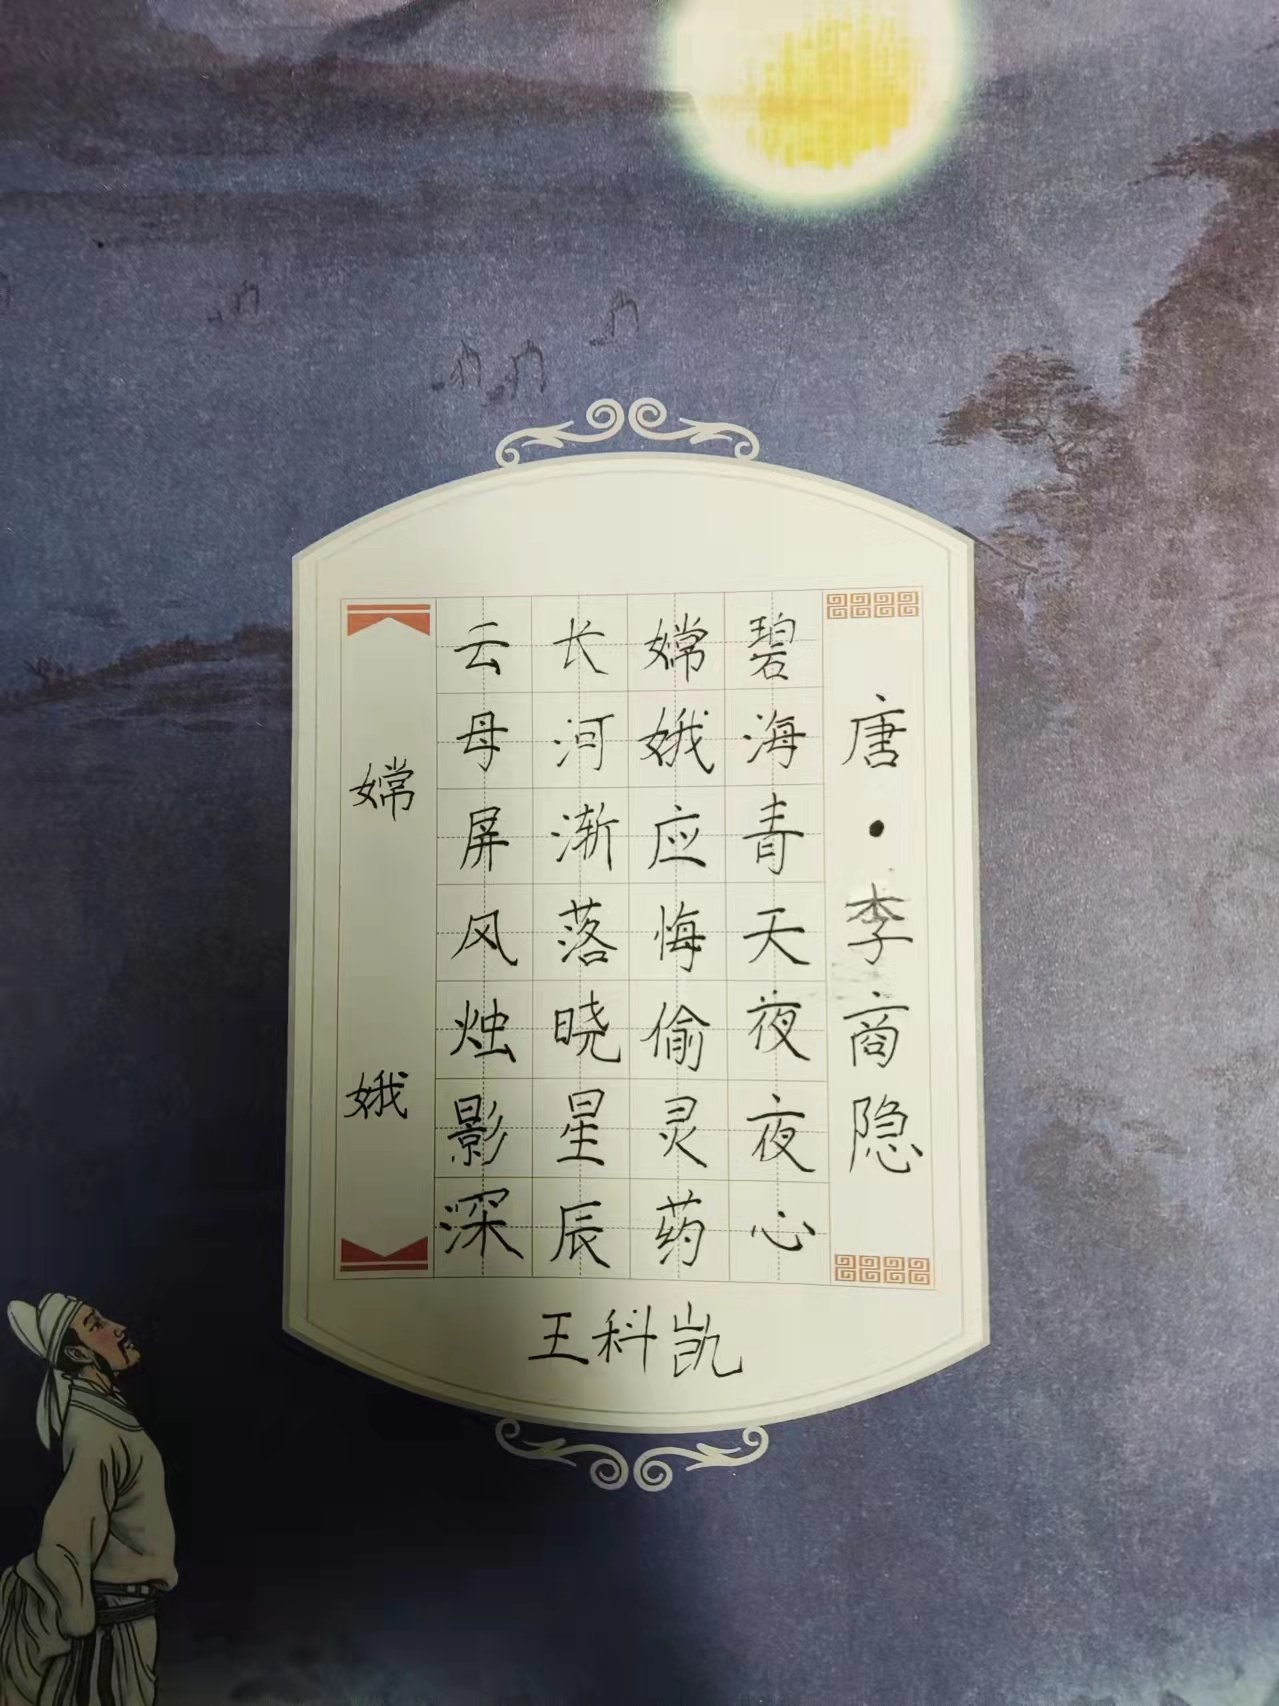 嫦娥
云母屏风烛影深
长河渐落晓星辰
嫦娥应悔偷灵药
碧海青天夜夜心
唐·李商隐
王科凯